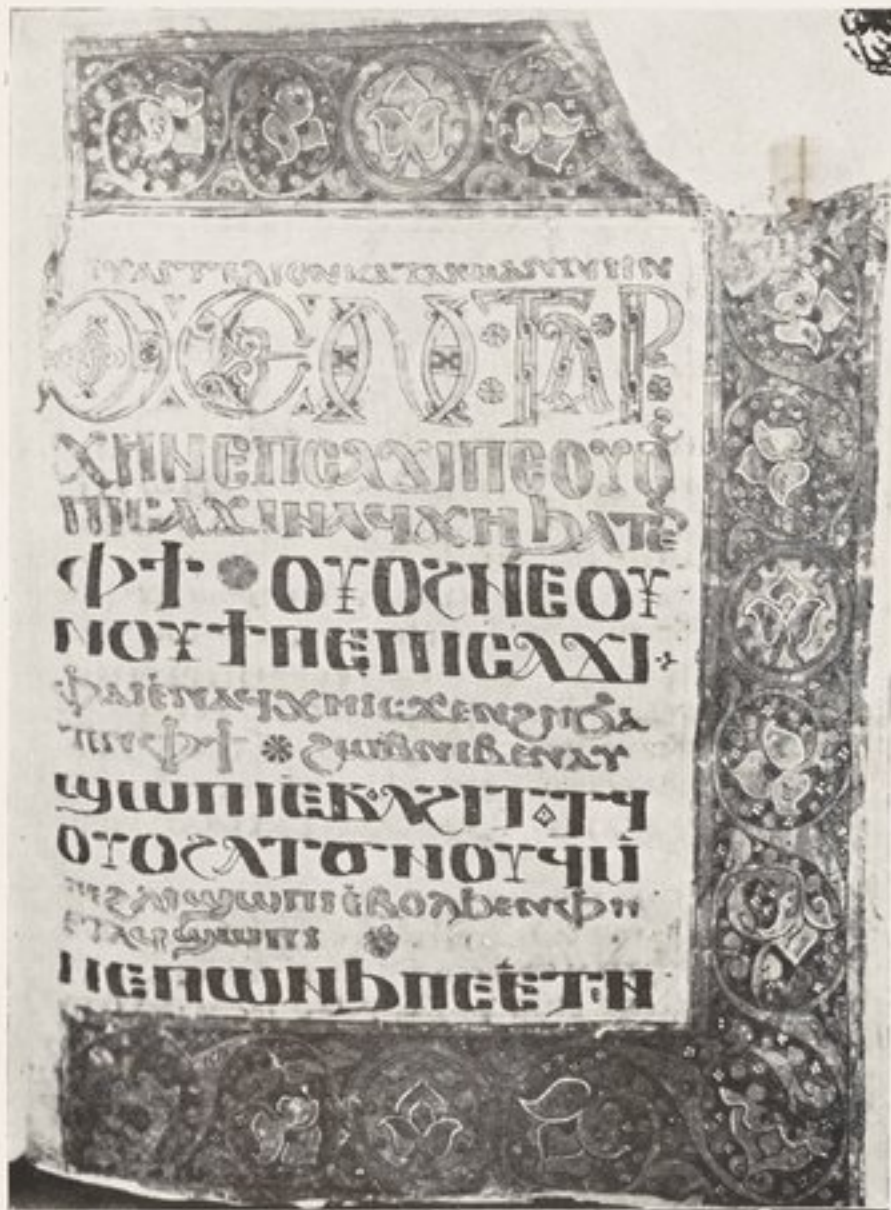 ⲉⲩⲁⲅⲅⲉⲗⲓⲟⲛ ⲕⲁⲧⲁ ⲓⲱⲁⲛⲛⲏⲛ
ϧⲉⲛ ⲧⲁⲣ
ⲭⲏ ⲛⲉ ⲡⲥⲁϫⲓ ⲡⲉ ⲟⲩⲟϩ
ⲡⲓⲥⲁϫⲓ ⲛⲁϥⲭⲏ ϧⲁⲧⲉ
ⲫϯ ⲟⲩⲟϩ ⲛⲉ ⲟⲩ
ⲛⲟⲩϯ ⲡⲉ ⲡⲓⲥⲁϫⲓ
ⲫⲁⲓ ⲉⲛⲁϥⲭⲏ ⲓⲥϫⲉⲛ ϩⲏ ϧⲁ
ⲧⲉⲛ ⲫϯ ϩⲱⲃ ⲛⲓⲃⲉⲛ ⲁⲩ
ϣⲱⲡⲓ ⲉⲃⲟⲗ ϩⲓⲧⲟⲧϥ
ⲟⲩⲟϩ ⲁⲧϭⲛⲟⲩϥ ⲙ̀
ⲡⲉ ϩⲗⲓ ϣⲱⲡⲓ ⲉⲃⲟⲗϧⲉⲛ ⲫⲏ
ⲉⲧⲁϥϣⲱⲡⲓ
ⲛⲉ ⲡⲱⲛϧ ⲡⲉ ⲉⲧⲉⲛ